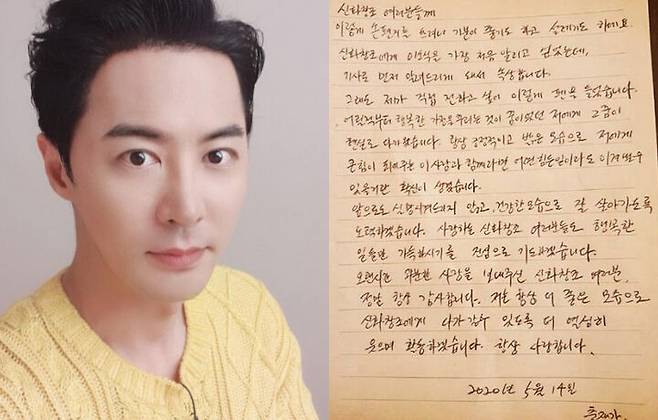 신화창조 여러분들께
이렇게 손편지를 쓰려니 기분이 좋기도 하고 설레기도 하네요.
신화창조에게 이 소식을 가장 처음 알리고 싶었는데,
기사로 먼저 알려드리게 돼서 속상합니다.
그래도 제가 직접 전하고 싶어 이렇게 펜을 들었습니다.
어린시절부터 행복한 가정을 꾸리는 것이 꿈이었던 저에게 그 꿈이
현실로 다가왔습니다. 항상 긍정적이고 밝은 모습으로 저에게
큰힘이 되어주는 이 사람과 함께라면 어떤 힘든일이라도 이겨낼수
있을거란 확신이 생겼습니다.
앞으로도 실망시켜드리지 않고, 건강한 모습으로 잘 살아가도록
노력하겠습니다. 사랑하는 신화창조 여러분들도 행복한
일들만 가득하시기를 진심으로 기도하겠습니다.
오랜시간 과분한 사랑을 보내주신 신화창조 여러분,
정말 항상 감사합니다. 저는 항상 더 좋은 모습으로
신화창조에게 다가갈수 있도록 더 열심히
웃으며 활동하겠습니다. 항상 사랑합니다.
2020년 5월 14일